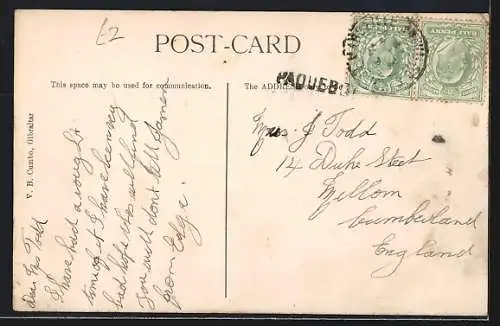 £2
POST-CARD
PAQUEBOT
This space may be used for communication.
The ADDRESS
V. B. Cumbo, Gibraltar
HALF PENNY
Dear Mrs Todd
I have had a roug
time of it I have been very
bad hope you will and
you well dont tell James
from Edge
Mrs J Todd
14 Duke Street
Millom
Cumberland
England